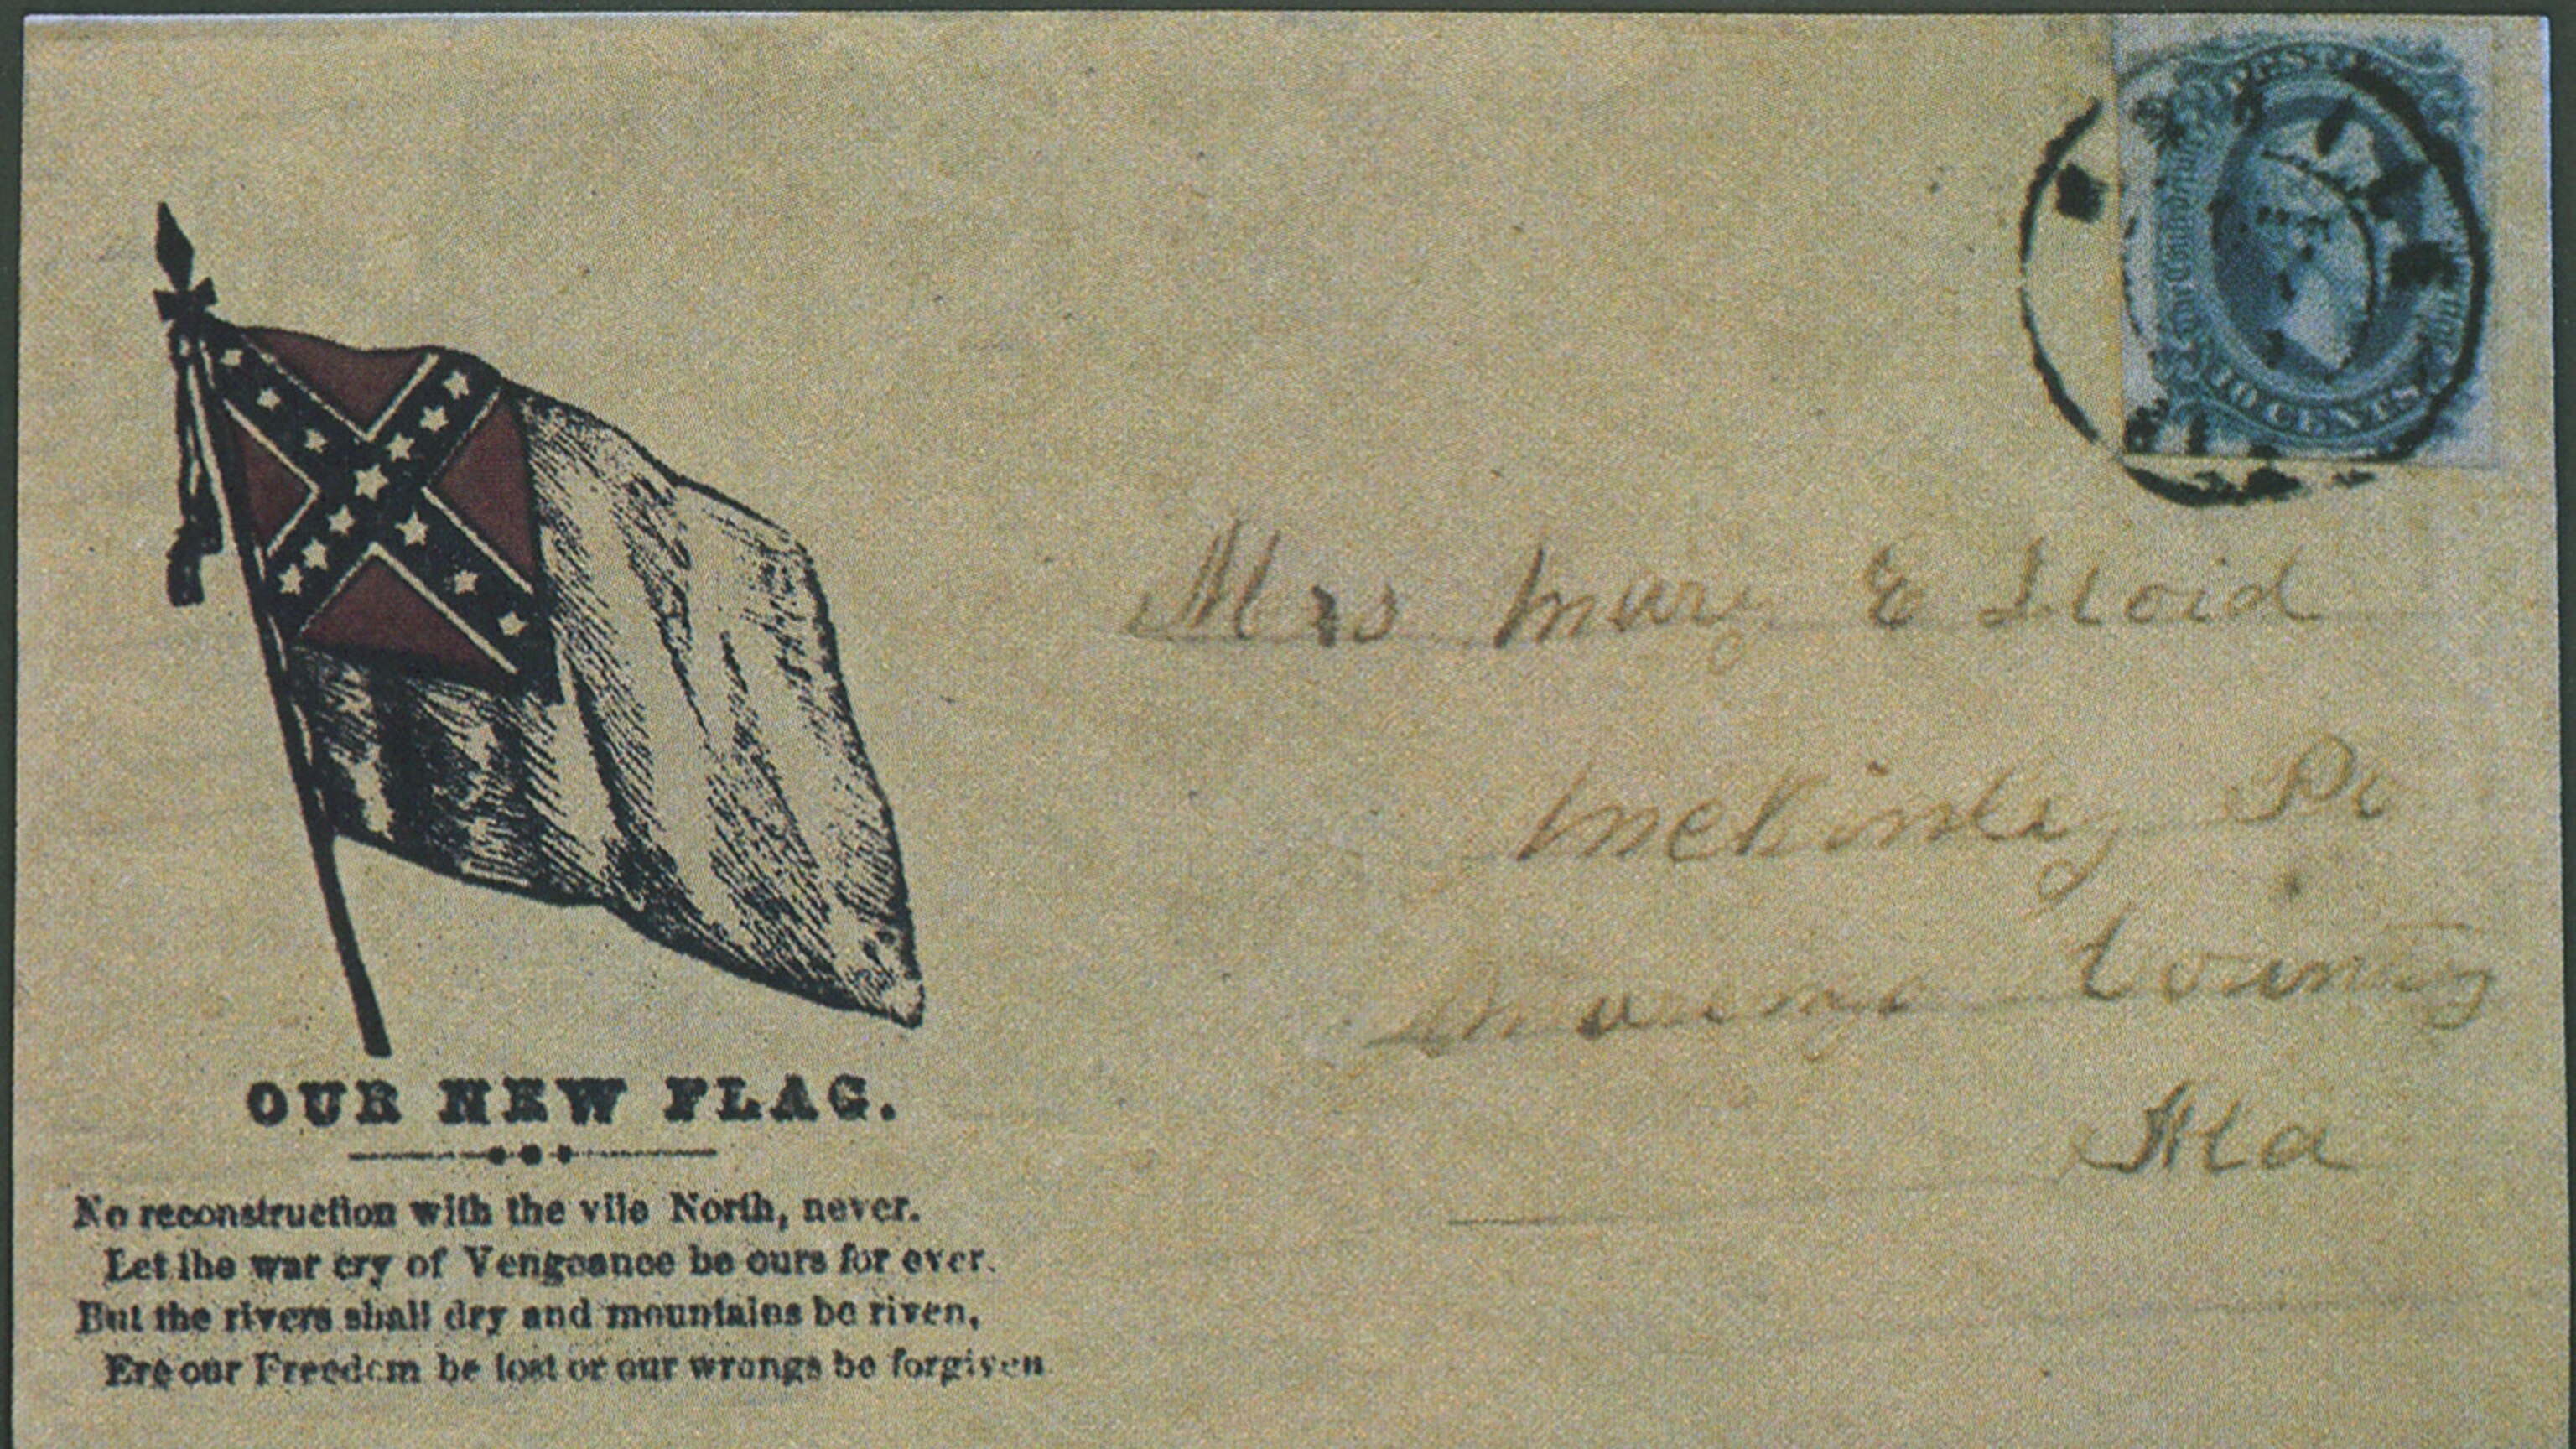 10 CENTS
Mrs Mary E Lloid
McKinley Po
Marengo County
Ala
OUR NEW FLAG.
No reconstruction with the vile North, never.
Let the war cry of Vengeance be ours for ever.
But the rivers shall dry and mountains be riven,
Ere our Freedom be lost or our wrongs be forgiven